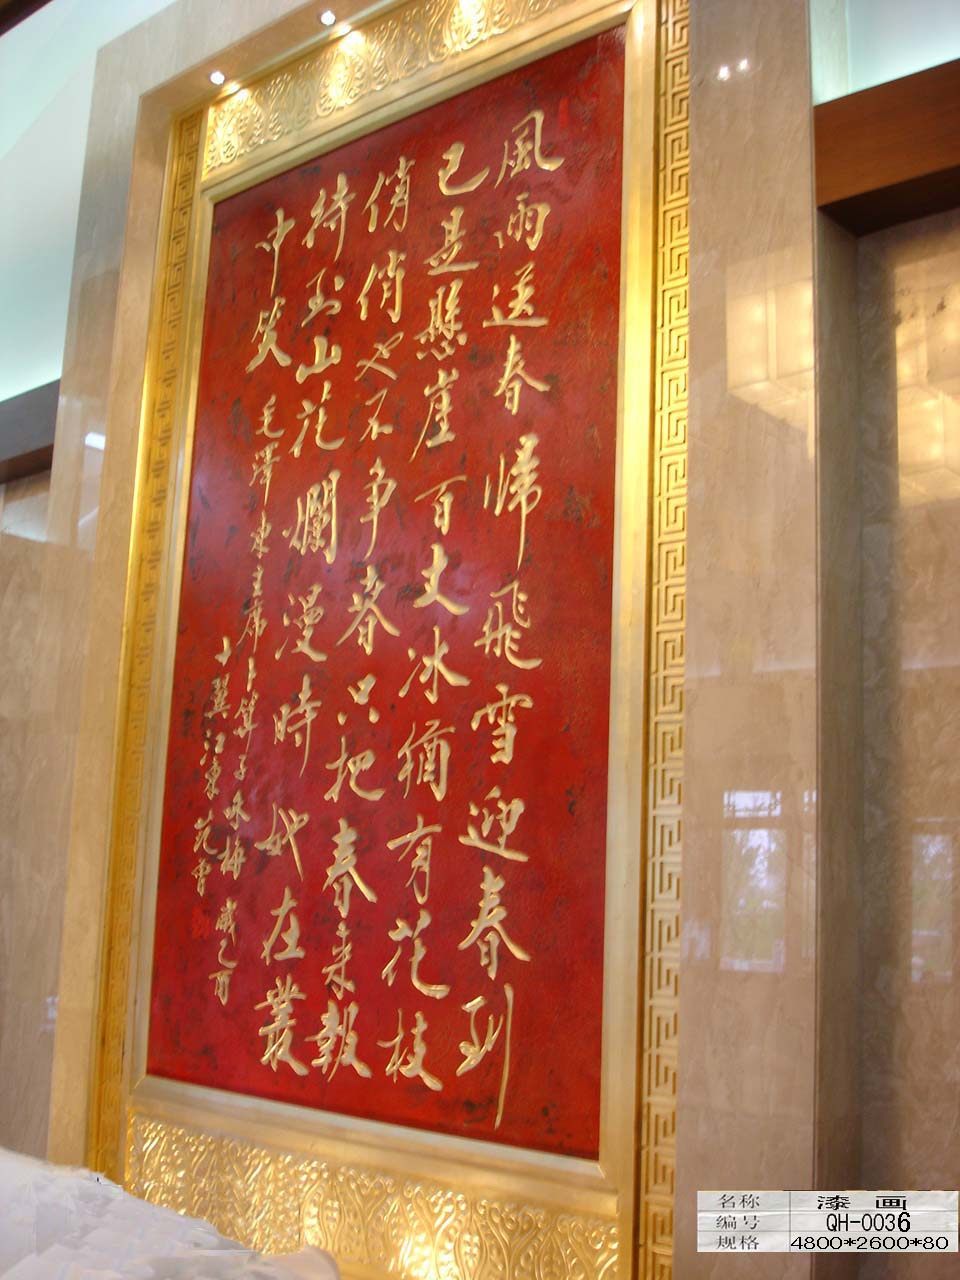 風雨送春歸飛雪迎春到
已是懸崖百丈冰猶有花枝
俏俏也不争春只把春来報
待到山花爛漫時她在叢
中笑 毛澤東主席卜算子咏梅 歲乙酉
十翼江東范曾
名称 漆画
编号 QH-0036
规格 4800*2600*80